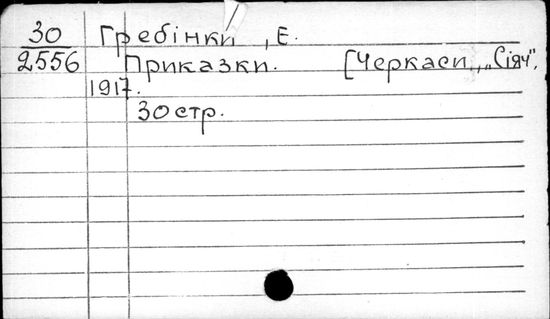 30 Гребінки, Е.
2556 Приказки. [Черкаси, „Сіяч",
1917.
30 стр.